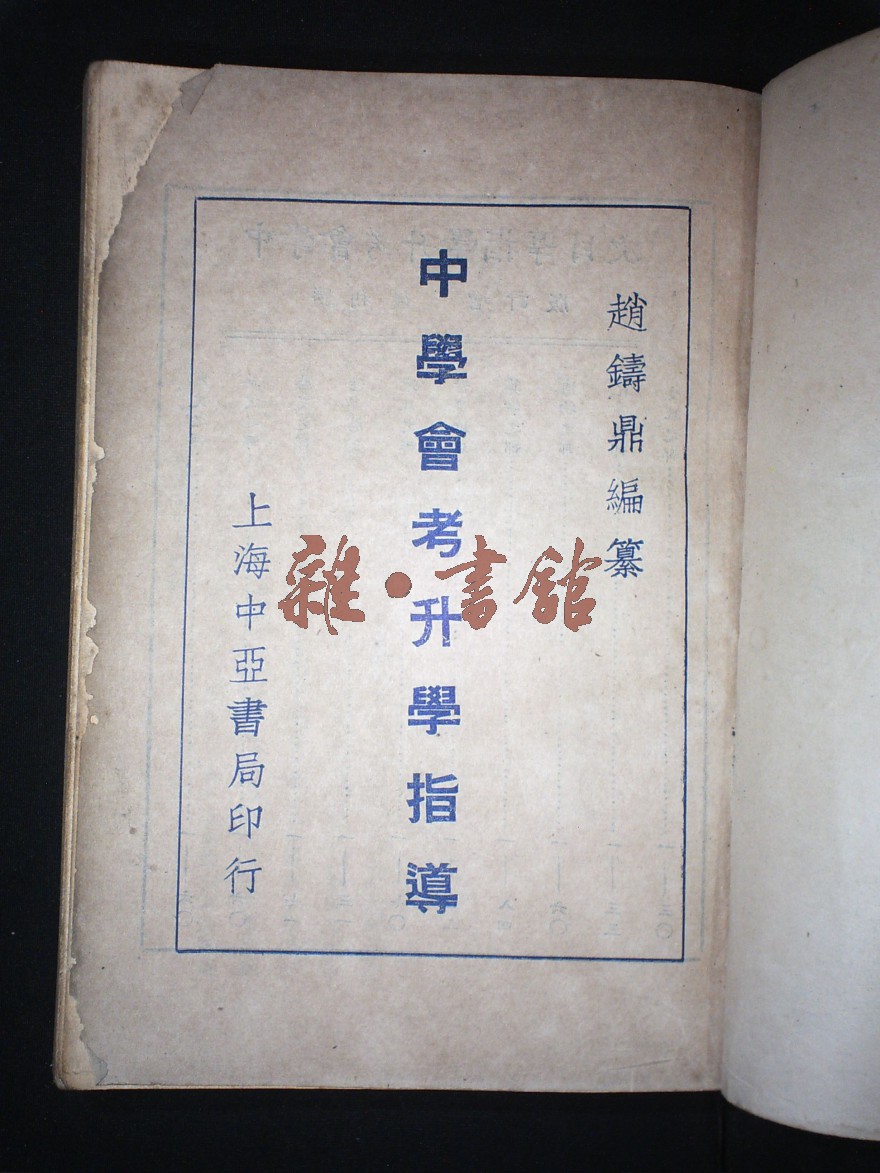 趙鑄鼎編纂
中學會考升學指導
上海中亞書局印行
雜·書館